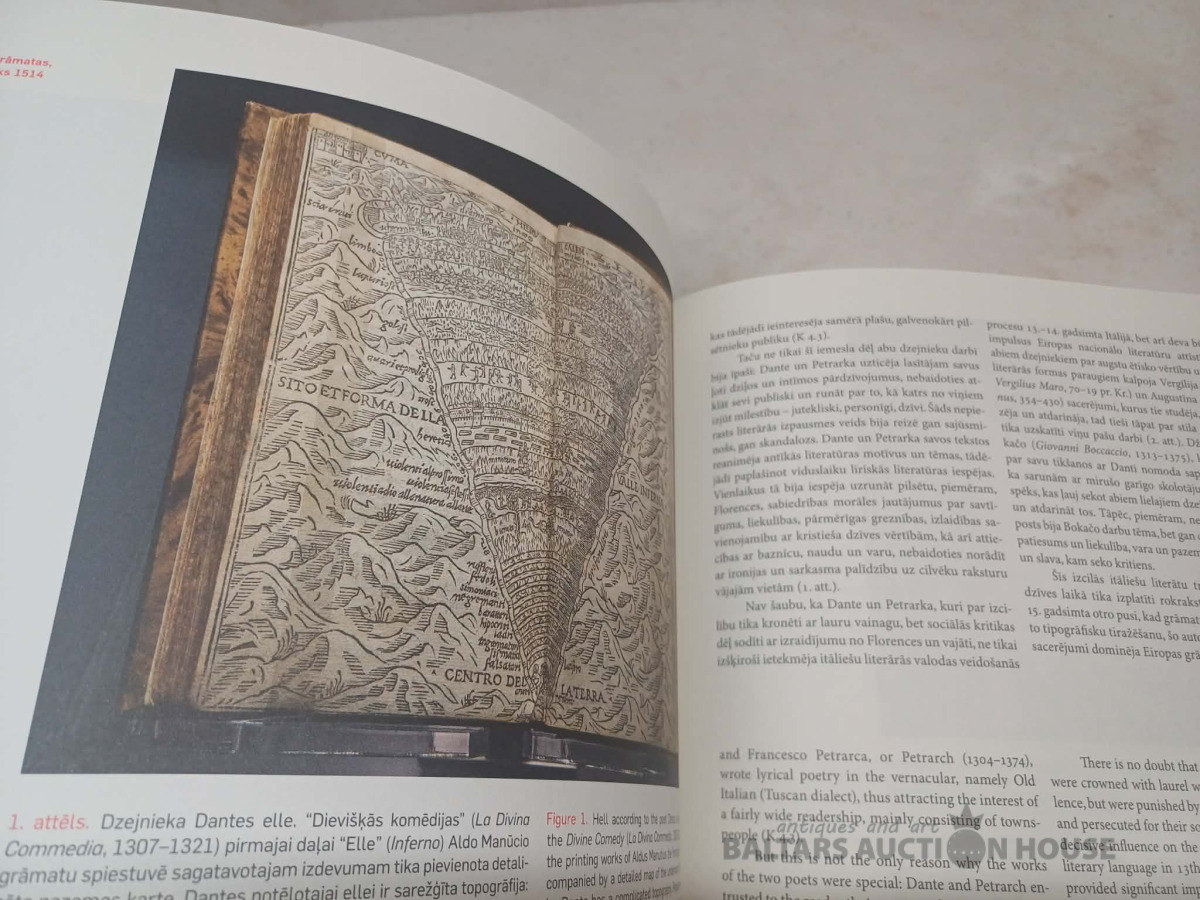 rāmatas,
ks 1514
CVMA
limbo
SITO ET FORMA DELLA
VALLE INFERNA
simoniaci
negromanti
hipocriti
ladri
falsatori
CENTRO DEL
LA TERRA
1. attēls. Dzejnieka Dantes elle. "Dievišķās komēdijas" (La Divina
Commedia, 1307–1321) pirmajai daļai "Elle" (Inferno) Aldo Manūcio
grāmatu spiestuvē sagatavotajam izdevumam tika pievienota detali-
pazemes karte. Dantes notēlotajai ellei ir sarežģīta topogrāfija:
Figure 1. Hell according to the poet
the Divine Comedy (La Divina Commedia,
the printing works of Aldus Manutius
companied by a detailed map of the
kas tādējādi ieinteresēja samērā plašu, galvenokārt pil-
sētnieku publiku (K 4.3).
Taču ne tikai šī iemesla dēļ abu dzejnieku darbi
bija īpaši: Dante un Petrarka uzticēja lasītājam savus
ļoti dziļos un intīmos pārdzīvojumus, nebaidoties at-
klāt sevi publiski un runāt par to, kā katrs no viņiem
izjūt mīlestību – jutekliski, personīgi, dzīvi. Šāds nepie-
rasts literārās izpausmes veids bija reizē gan sajūsmi-
nošs, gan skandalozs. Dante un Petrarka savos tekstos
reanimēja antīkās literatūras motīvus un tēmas, tādē-
jādi paplašinot viduslaiku liriskās literatūras iespējas.
Vienlaikus tā bija iespēja uzrunāt pilsētu, piemēram,
Florences, sabiedrības morāles jautājumus par savtī-
guma, liekulības, pārmērīgas greznības, izlaidības sa-
vienojamību ar kristieša dzīves vērtībām, kā arī attie-
cības ar baznīcu, naudu un varu, nebaidoties norādīt
ar ironijas un sarkasma palīdzību uz cilvēku raksturu
vājajām vietām (1. att.).
Nav šaubu, ka Dante un Petrarka, kuri par izci-
lību tika kronēti ar lauru vainagu, bet sociālās kritikas
dēļ sodīti ar izraidījumu no Florences un vajāti, ne tikai
izšķiroši ietekmēja itāliešu literārās valodas veidošanās
procesu 13.–14. gadsimta Itālijā, bet arī deva
impulsus Eiropas nacionālo literatūru attīst
abiem dzejniekiem par augstu ētisko vērtību u
literārās formas paraugiem kalpoja Vergilija
Vergilius Maro, 70–19 pr. Kr.) un Augustīna
nus, 354–430) sacerējumi, kurus tie studēja
zēja un atdarināja, tad tieši tāpat par stila
tika uzskatīti viņu pašu darbi (2. att.). Dž
kačo (Giovanni Boccaccio, 1313–1375),
par savu tikšanos ar Danti nomoda sap
ka sarunām ar mirušo garīgo skolotāju
spēks, kas ļauj sekot abiem lielajiem dze
un atdarināt tos. Tāpēc, piemēram, ne
posts bija Bokačo darbu tēma, bet gan
patiesums un liekulība, vara un pazem
un slava, kam seko kritiens.
Šīs izcilās itāliešu literātu tr
dzīves laikā tika izplatīti rokrakst
15. gadsimta otro pusi, kad grāmat
to tipogrāfisku tiražēšanu, šo auto
sacerējumi dominēja Eiropas grā
and Francesco Petrarca, or Petrarch (1304–1374),
wrote lyrical poetry in the vernacular, namely Old
Italian (Tuscan dialect), thus attracting the interest of
a fairly wide readership, mainly consisting of towns-
people (K 4.3).
But this is not the only reason why the works
of the two poets were special: Dante and Petrarch en-
There is no doubt that
were crowned with laurel w
lence, but were punished by
and persecuted for their so
decisive influence on the
literary language in 13th
provided significant imp
antiques and art
BALTARS AUCTION HOUSE